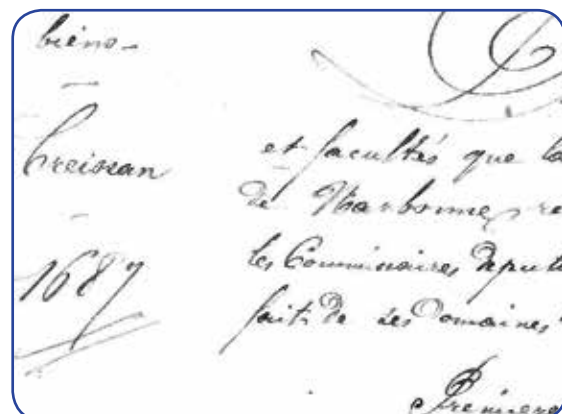 biens
Creissan
1687
et facultés que la
de Narbonne, re
les Commissaires deputé
fait de ses Domaines
Premiere